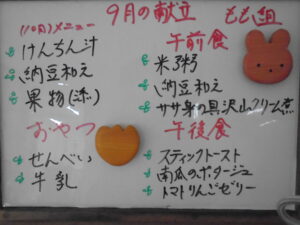 9月の献立 もも組
(10月)メニュー
けんちん汁
納豆和え
果物(柿)
おやつ
せんべい
牛乳
午前食
米粥
納豆和え
ササ身の具沢山クリーム煮
午後食
スティックトースト
南瓜のポタージュ
トマトりんごゼリー